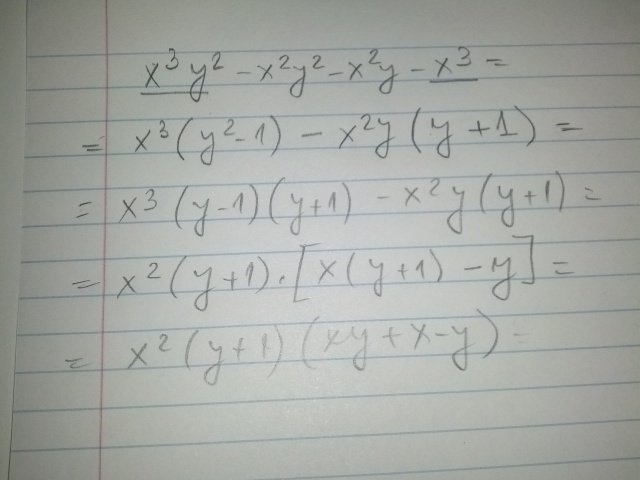 x³y² - x²y² - x²y - x³ =
= x³(y²-1) - x²y(y+1) =
= x³(y-1)(y+1) - x²y(y+1) =
= x²(y+1)·[x(y+1) - y] =
= x²(y+1)(xy+x-y) -